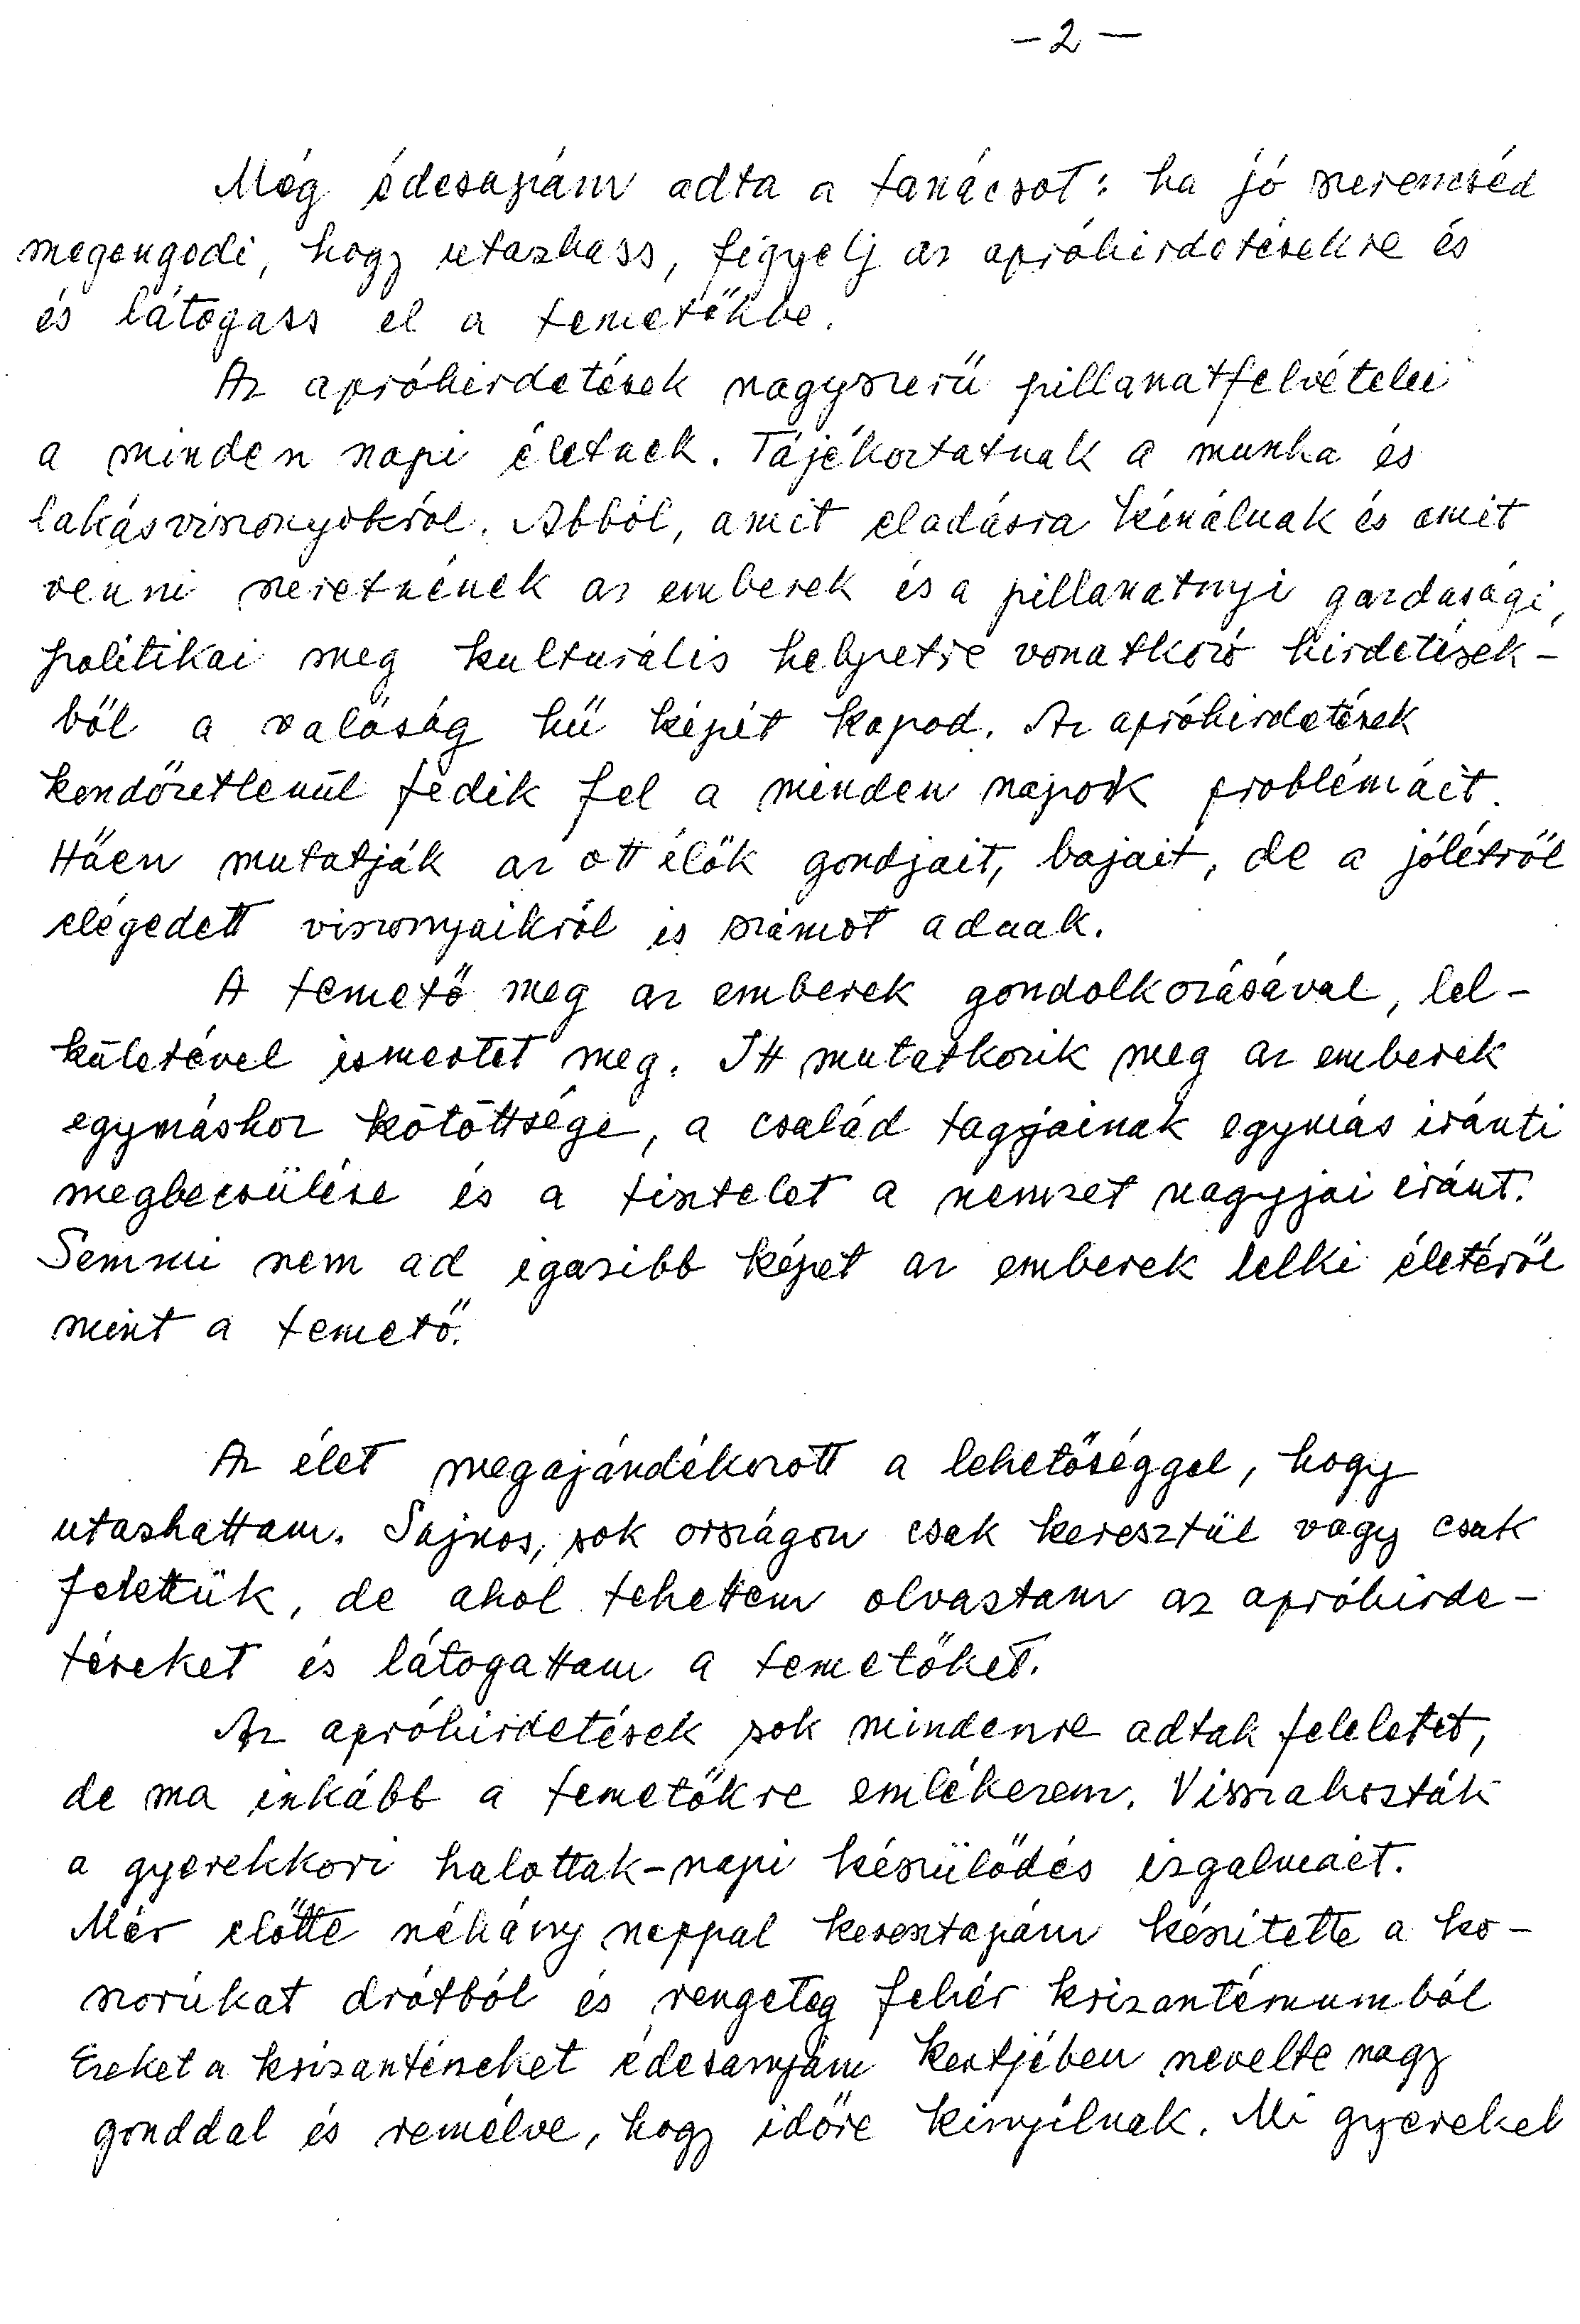 - 2 -
Még édesapám adta a tanácsot: ha jó szerencséd
megengedi, hogy utazhass, figyelj az apróhirdetésekre és
és látogass el a temetőkbe.
Az apróhirdetések nagyszerű pillanatfelvételei
a minden napi életnek. Tájékoztatnak a munka és
lakásviszonyokról. Abból, amit eladásra kínálnak és amit
venni szeretnének az emberek és a pillanatnyi gazdasági,
politikai meg kulturális helyzetre vonatkozó hirdetések-
ből a valóság hű képét kapod. Az apróhirdetések
kendőzetlenül fedik fel a minden napok problémáit.
Hűen mutatják az ott élők gondjait, bajait, de a jólétről
elégedett viszonyaikról is számot adnak.
A temető meg az emberek gondolkozásával, lel-
kületével ismertet meg. Itt mutatkozik meg az emberek
egymáshoz kötöttsége, a család tagjainak egymás iránti
megbecsülése és a tisztelet a nemzet nagyjai iránt.
Semmi nem ad igazibb képet az emberek lelki életéről
mint a temető.
Az élet megajándékozott a lehetőséggel, hogy
utazhattam. Sajnos, sok országon csak keresztül vagy csak
felettük, de ahol tehettem olvastam az apróhirde-
téseket és látogattam a temetőket.
Az apróhirdetések sok mindenre adtak feleletet,
de ma inkább a temetőkre emlékezem. Visszahozták
a gyerekkori halottak-napi készülődés izgalmait.
Már előtte néhány nappal keresztapám készítette a ko-
szorúkat drótból és rengeteg fehér krizantémumból
Ezeket a krizantémeket édesanyám kertjében nevelte nagy
gonddal és remélve, hogy időre kinyílnak. Mi gyerekek